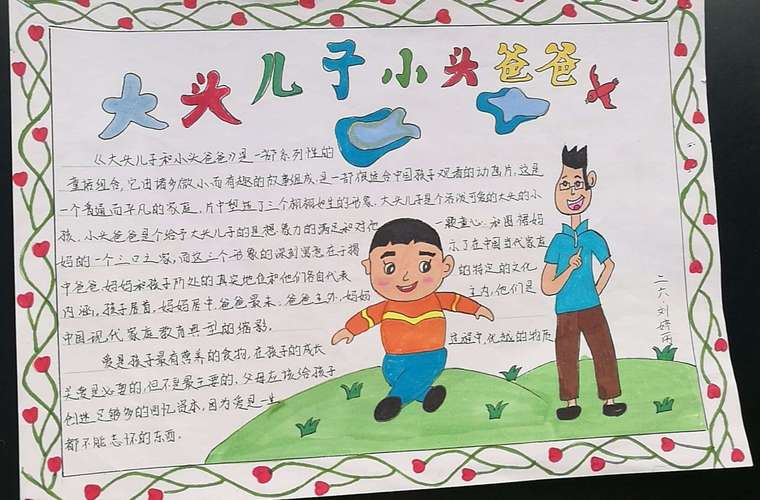 大头儿子小头爸爸
《大头儿子和小头爸爸》是一部系列性的
童话组合,它由诸多微小而有趣的故事组成,是一部很适合中国孩子观看的动画片,这是
一个普通而平凡的家庭,片中塑造了三个栩栩如生的形象,大头儿子是个活泼可爱的大头的小
孩,小头爸爸是个给予大头儿子的是想象力的满足和对他一颗童心,和围裙妈
妈的一个三口之家,而这三个形象的深刻寓意在于揭示了在中国当代家庭
中爸爸妈妈和孩子所处的真实地位和他们各自代表的特定的文化
内涵,孩子居首,妈妈居中,爸爸最末,爸爸主外,妈妈主内,他们是
中国现代家庭教育典型的缩影。
爱是孩子最有营养的食物,在孩子的成长过程中,优越的物质
关爱是必要的,但不是最主要的,父母应该给孩子
创造足够多的回忆资本,因为爱是一生
都不能忘怀的东西。
二六.刘婷雨